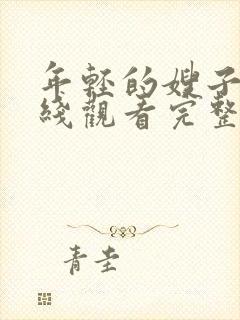 年轻的嫂子
綫觀看完整
青圭